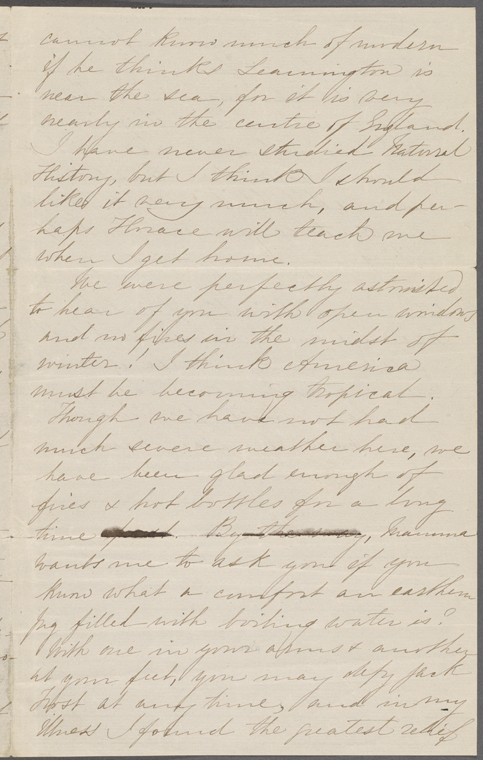 cannot know much of modern
if he thinks Leamington is
near the sea, for it is very
nearly in the centre of England.
I have never studied Natural
History, but I think I should
like it very much, and per-
haps Horace will teach me
when I get home.
We were perfectly astonished
to hear of you with open windows
and no fires in the midst of
winter! I think America
must be becoming tropical.
Though we have not had
much severe weather here, we
have been glad enough of
fires & hot bottles for a long
time past. By the way, Mamma
wants me to ask you if you
know what a comfort an earthern
jug filled with boiling water is?
With one in your arms & another
at your feet, you may defy Jack
Frost at any time, and in my
illness I found the greatest relief